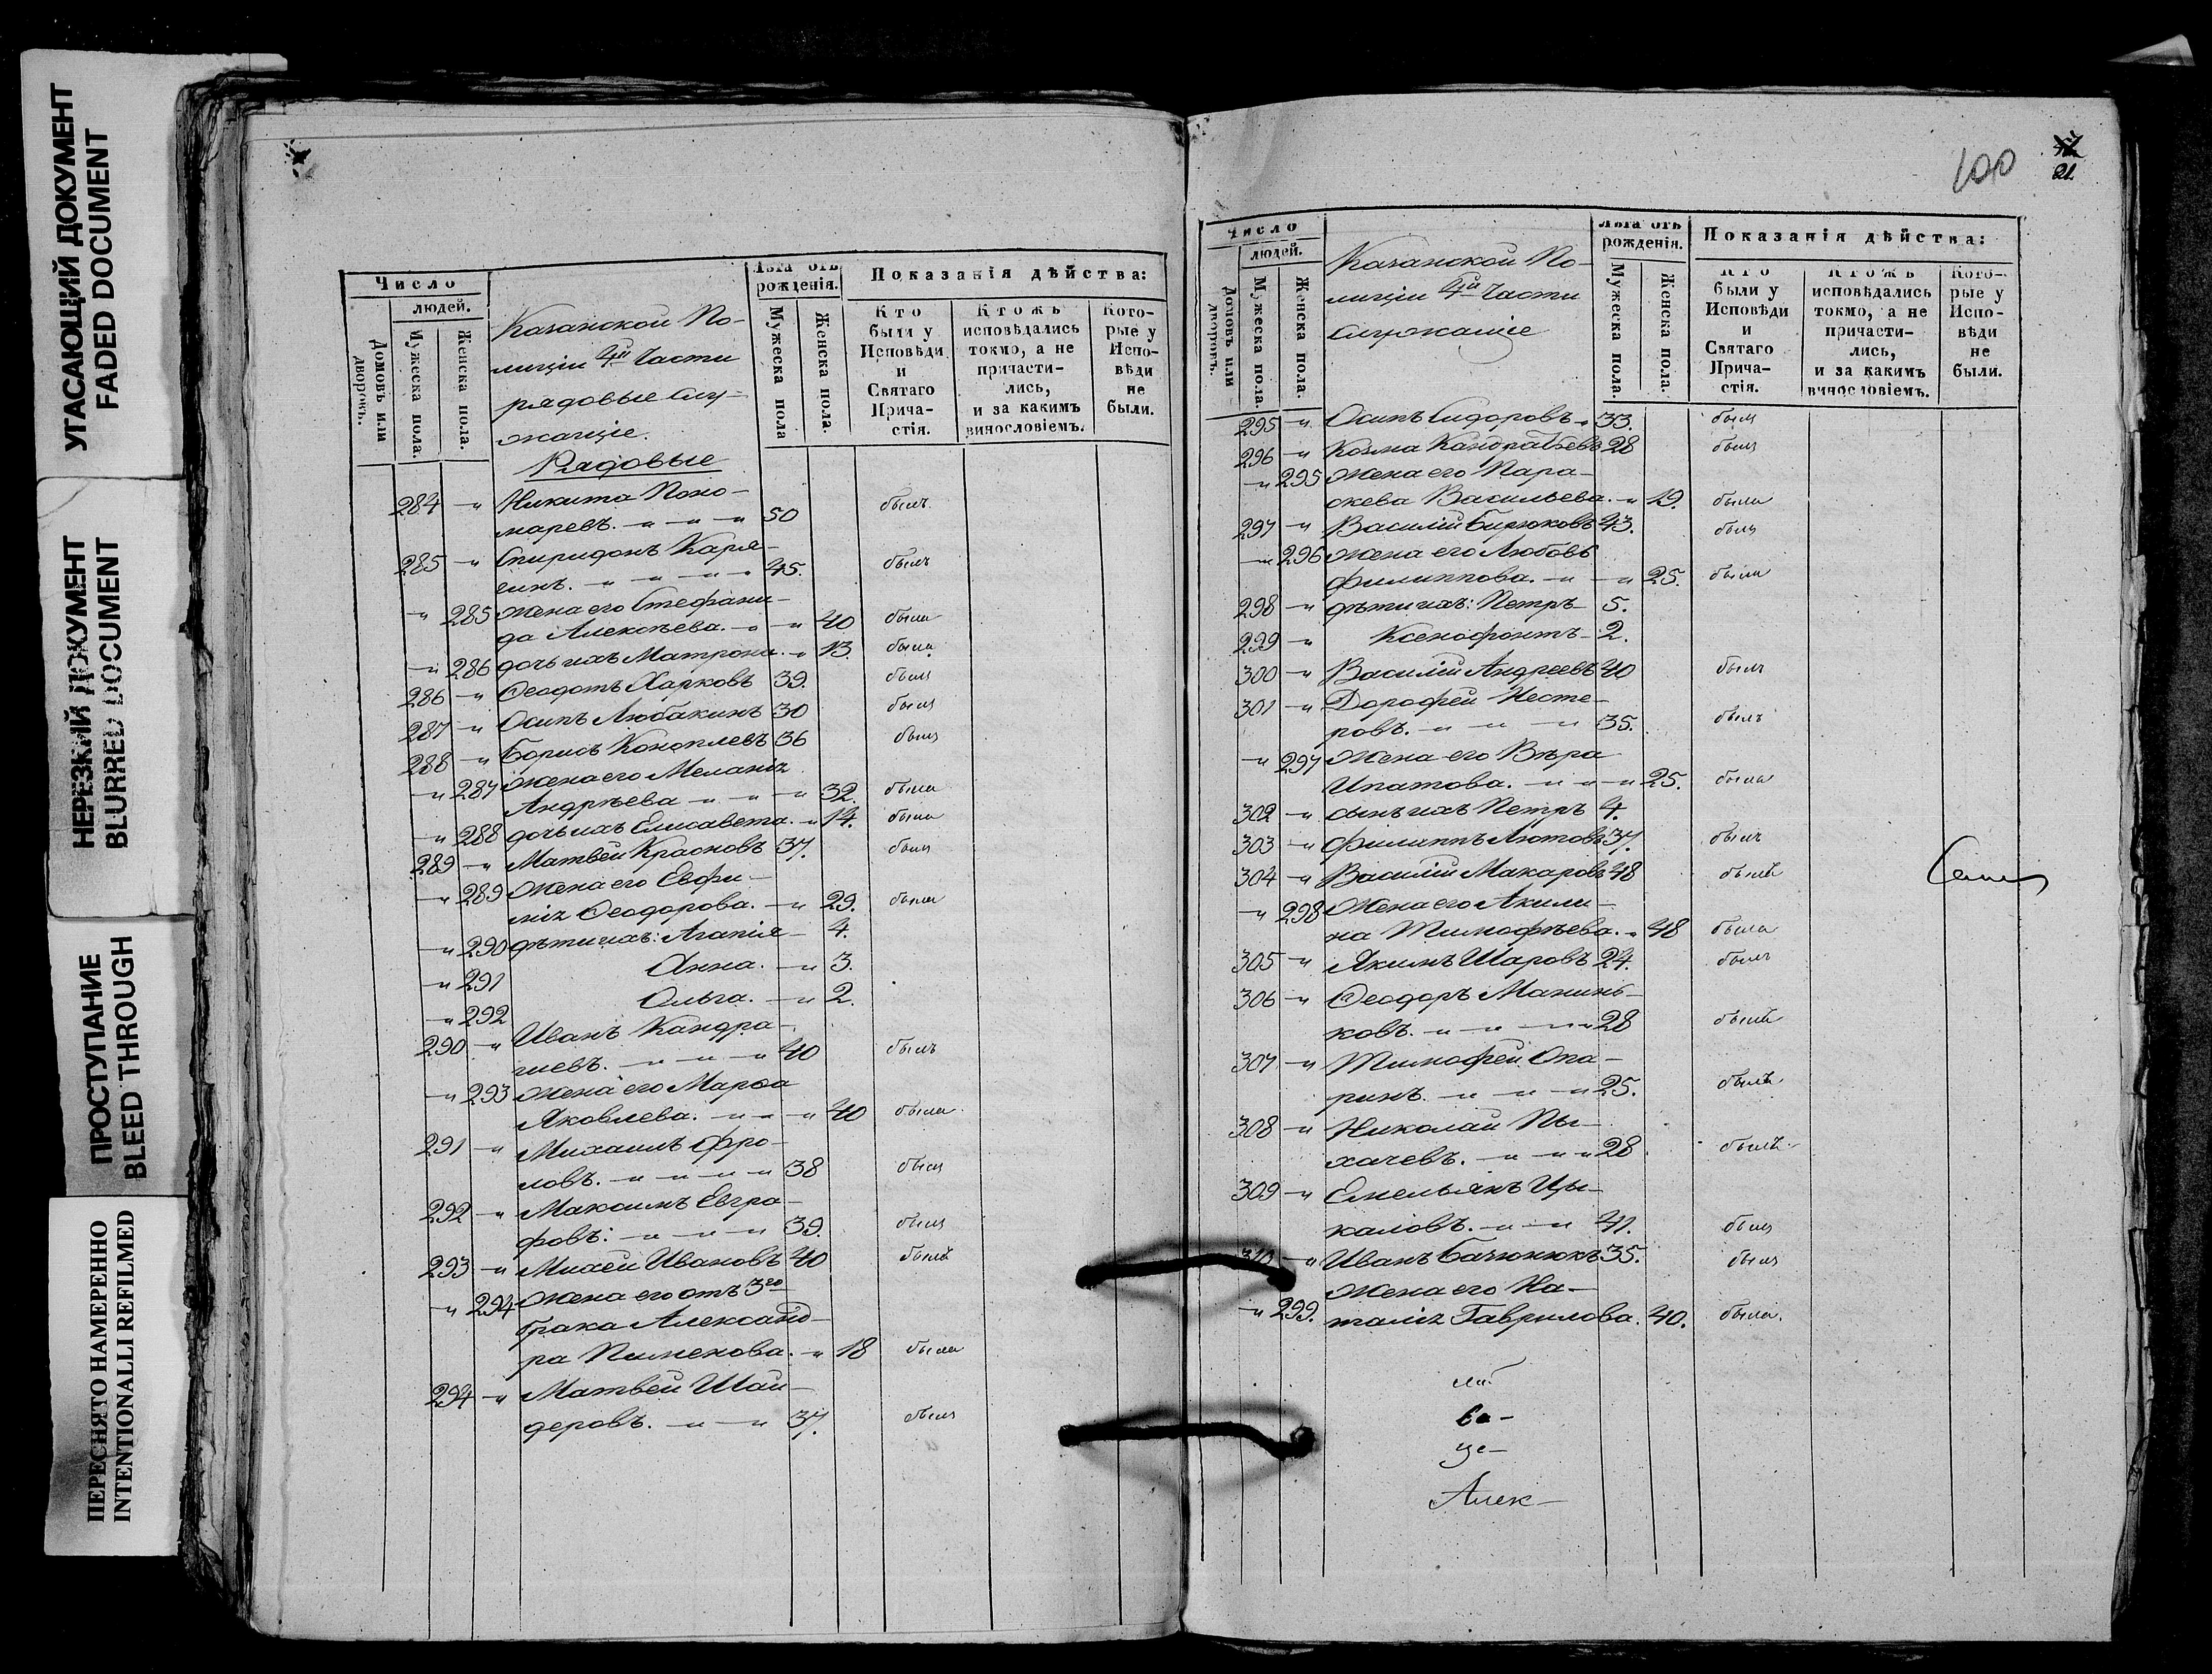 УГАСАЮЩИЙ ДОКУМЕНТ
FADED DOCUMENT
НЕРЕЗКИЙ ДОКУМЕНТ
BLURRED DOCUMENT
ПРОСТУПАНИЕ
BLEED THROUGH
ПЕРЕСНЯТО НАМЕРЕННО
INTENTIONALLI REFILMED
Число
людей.
Домовъ или дворовъ.
Мужеска пола.
Женска пола.
Казанской По-
лиціи 4й Части
рядовые слу-
жащіе.
Лѣта отъ
рожденія.
Мужеска пола
Женска пола.
Показанія дѣйства:
Кто
были у
Исповѣди
и
Святаго
Прича-
стія.
Ктожъ
исповѣдались
токмо, а не
причасти-
лись,
и за какимъ
винословіемъ.
Кото-
рые у
Испо-
вѣди
не
были.
Рядовые
284 -"- Никита Поно-
маревъ. -"-"-" 50 былъ
285 -"- Спиридонъ Каря-
гинъ. -"-"-" 45. былъ
-" 285 жена его Стефани-
да Алексѣева. -"-" 40 была
-" 286 дочь ихъ Матрона. -" 13. была
286 -" Ѳеодотъ Харковъ 39. былъ
287 -" Осипъ Любакинъ 30 былъ
288 -" Борисъ Коноплевъ 36 былъ
-" 287 жена его Меланія
Андрѣева -"-"-" 32. была
-" 288 дочь ихъ Елисавета. -" 14. была
289 -" Матвѣй Красновъ 37. былъ
-" 289 Жена его Евфи-
мія Ѳеодорова. -" 29. была
-" 290 дѣти ихъ: Агапія - 4.
-" 291 Анна. -" 3.
-" 292 Ольга. -" 2.
290 -" Иванъ Кандра-
шевъ. -"-"-" 40 былъ
-" 293 Жена его Марѳа
Яковлева. -"-"-" 40 была
291 -" Михаилъ Фро-
ловъ. -"-"-"-" 38 былъ
292 -" Максимъ Евгра-
фовъ: -"-"-" 39. былъ
293 -" Михей Ивановъ 40 былъ
-" 294 Жена его отъ 3го
брака Александ-
ра Пименова. -" 18 была
294 -" Матвѣй Шай-
деровъ. -"-" 37. былъ
100
21.
Число
людей.
Домовъ или дворовъ.
Мужеска пола.
Женска пола.
Казанской По-
лиціи 4й Части
служащіе
Лѣта отъ
рожденія.
Мужеска пола.
Женска пола.
Показанія дѣйства:
Кто
были у
Исповѣди
и
Святаго
Прича-
стія.
Ктожъ
исповѣдались
токмо, а не
причасти-
лись,
и за какимъ
винословіемъ.
Кото-
рые у
Испо-
вѣди
не
были.
295 -" Осипъ Сидоровъ -" 33. былъ
296 -" Козма Кандратьевъ 28 былъ
-" 295 жена его Пара-
скева Васильева. -" 19. была
297 -" Василій Бирюковъ 43. былъ
-" 296 жена его Любовь
Филиппова. -"-" 25. была
298 -" дѣти ихъ: Петръ - 5.
299 -" Ксенофонтъ - 2.
300 -" Василій Андреевъ 40 былъ
301 -" Дорофей Несте-
ровъ. -"-"-" 35. былъ
-" 297 Жена его Вѣра
Ипатова. -"-"-" 25. была
302 -" сынъ ихъ Петръ 4.
303 -" Филиппъ Лютовъ 37. былъ
304 -" Василій Макаровъ 48 былъ
-" 298 Жена его Акили-
на Тимофѣева. -" 48 была
305 -" Якимъ Шаровъ 24. былъ
306 -" Ѳеодоръ Манинь-
ковъ. -"-"-" 28 былъ
307 -" Тимофей Опа-
ринъ. -"-"-" 25. былъ
308 -" Николай Пы-
хачевъ. -"-"-" 28 былъ
309 -" Емельянъ Цы-
каловъ. -"-" 41. былъ
310 -" Иванъ Бачинюкъ 35. былъ
Жена его На-
-" 299. талія Гаврилова. 40. была.
ва-
ще-
Алек-